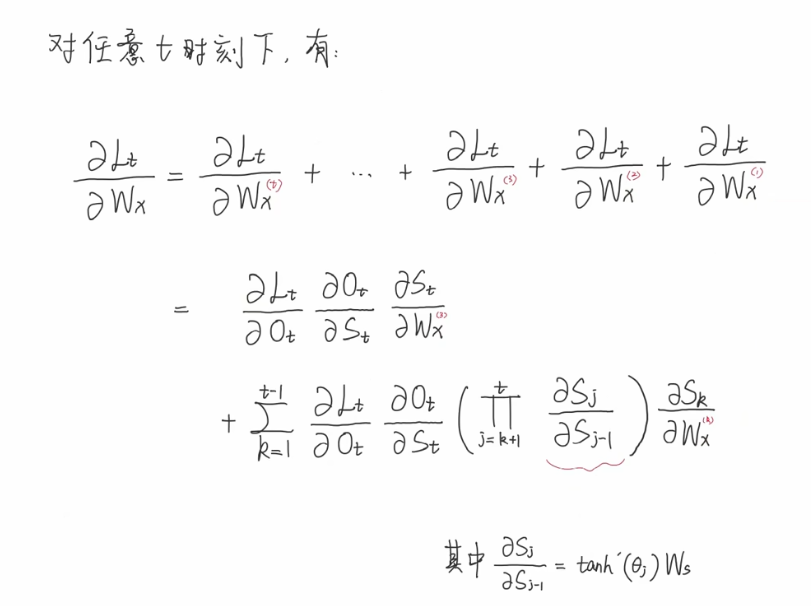 对任意t时刻下,有:
∂Lt/∂Wx = ∂Lt/∂Wx^(t) + ... + ∂Lt/∂Wx^(3) + ∂Lt/∂Wx^(2) + ∂Lt/∂Wx^(1)
= ∂Lt/∂Ot ∂Ot/∂St ∂St/∂Wx^(3)
+ ∑_{k=1}^{t-1} ∂Lt/∂Ot ∂Ot/∂St (∏_{j=k+1}^{t} ∂Sj/∂Sj-1) ∂Sk/∂Wx^(k)
其中 ∂Sj/∂Sj-1 = tanh'(θj) Ws